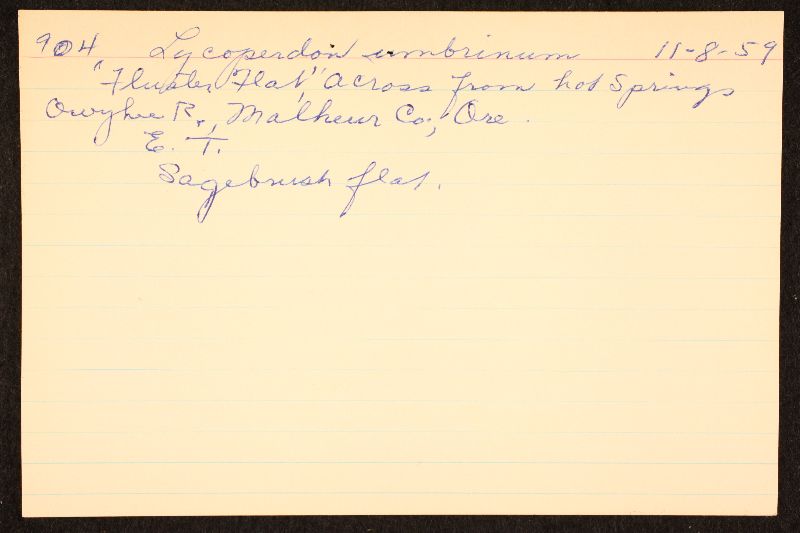 904 Lycoperdon umbrinum 11-8-59
Flat" Across from hot Springs
Owyhee R., Malheur Co., Ore.
E. T.
Sagebrush flat.